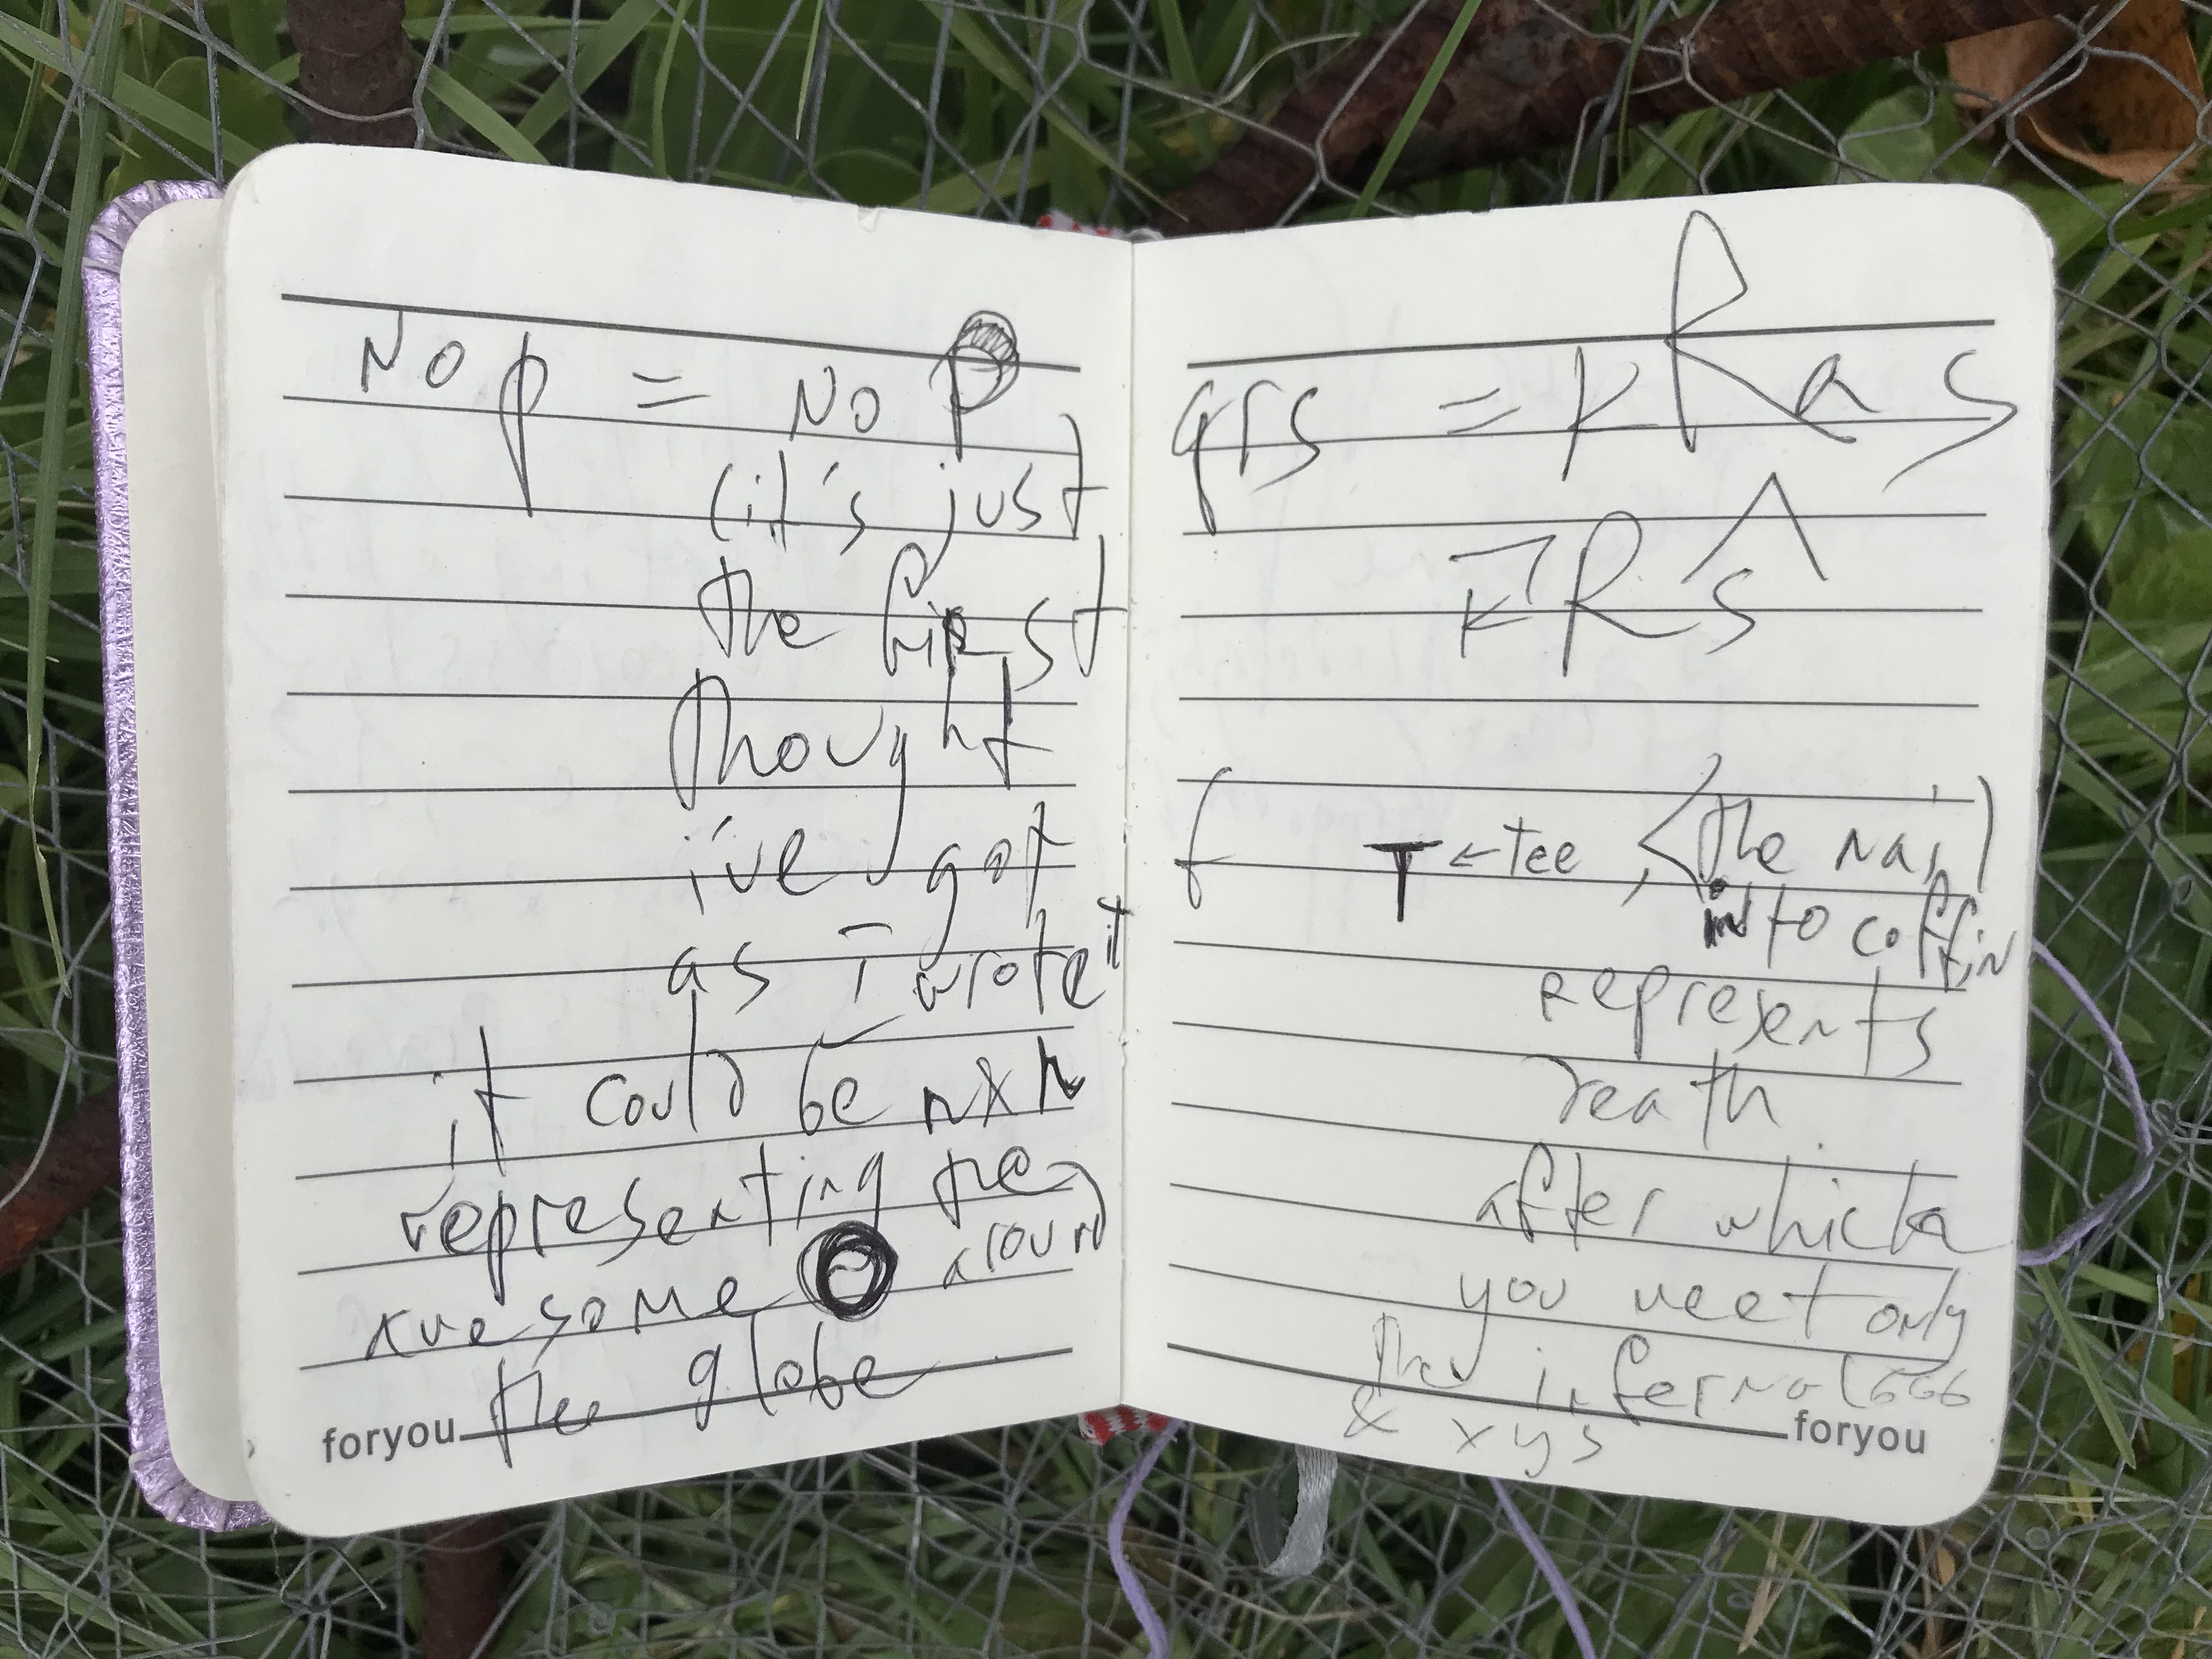 NO p = NO P
(it's just
the first
thought
i've got
as I wrote it
it could be nxn
representing the
awesome O around
the globe
foryou
qrs = kRas
kRs
T ← Tee, (the nail
into coffin
represents
death
after which
you meet only
the infernal 666
& xys
foryou